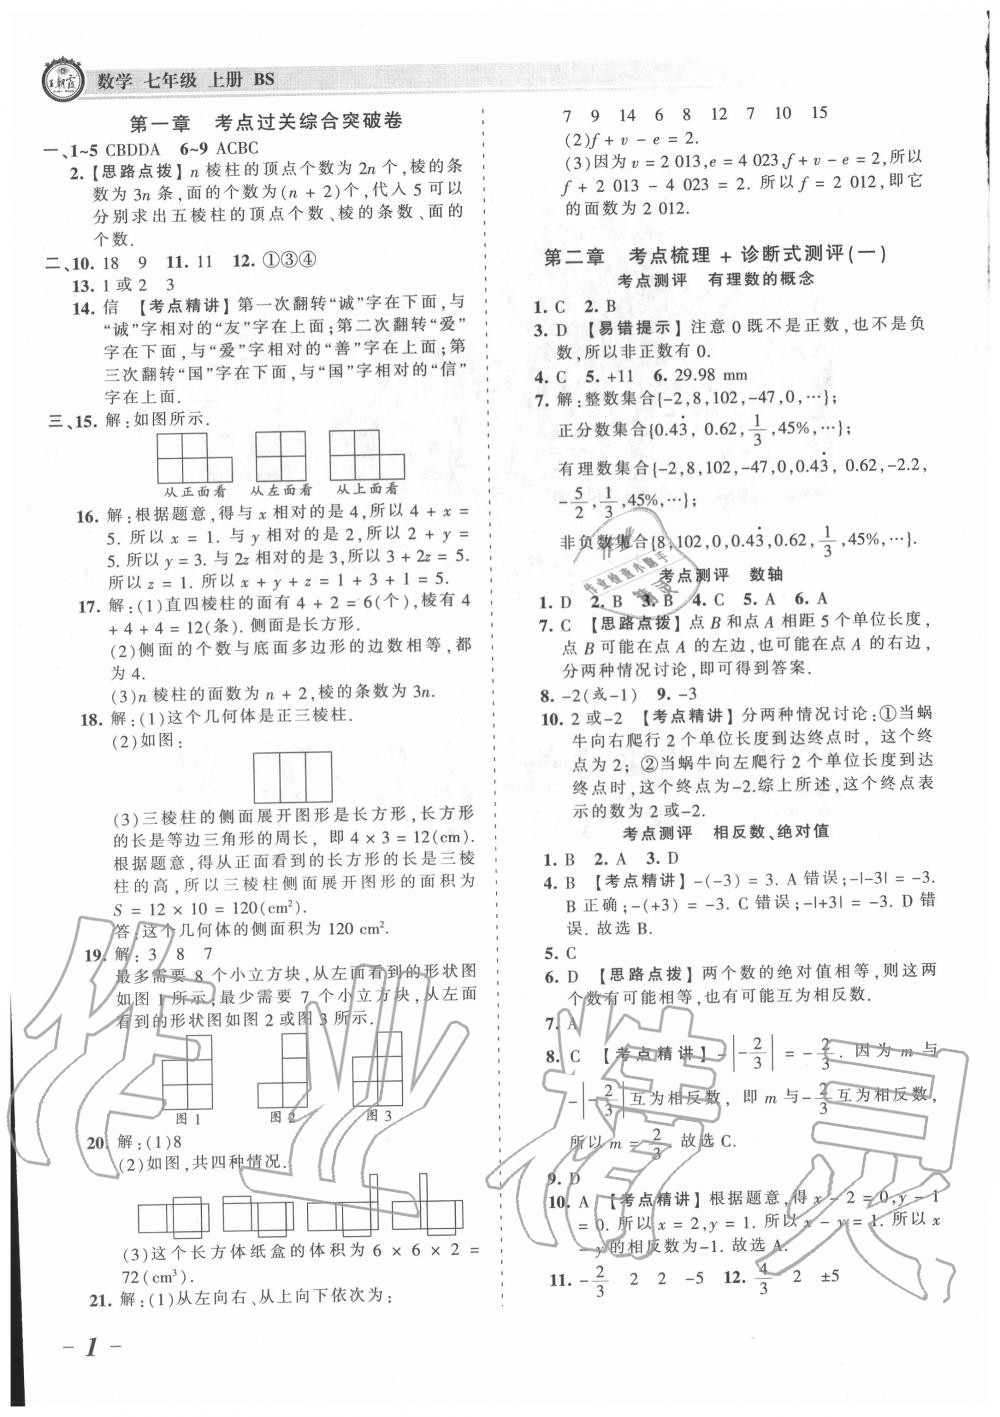 王朝霞
数学 七年级 上册 BS
第一章 考点过关综合突破卷
一、1~5 CBDDA 6~9 ACBC
2.【思路点拨】n 棱柱的顶点个数为 2n 个,棱的条
数为 3n 条,面的个数为(n + 2)个,代入 5 可以
分别求出五棱柱的顶点个数、棱的条数、面的
个数.
二、10. 18 9 11. 11 12. ①③④
13. 1 或 2 3
14. 信 【考点精讲】第一次翻转“诚”字在下面,与
“诚”字相对的“友”字在上面;第二次翻转“爱”
字在下面,与“爱”字相对的“善”字在上面;第
三次翻转“国”字在下面,与“国”字相对的“信”
字在上面.
三、15. 解:如图所示.
从正面看 从左面看 从上面看
16. 解:根据题意,得与 x 相对的是 4,所以 4 + x =
5. 所以 x = 1. 与 y 相对的是 2,所以 2 + y =
5. 所以 y = 3. 与 2z 相对的是 3,所以 3 + 2z = 5.
所以 z = 1. 所以 x + y + z = 1 + 3 + 1 = 5.
17. 解:(1)直四棱柱的面有 4 + 2 = 6(个),棱有 4
+ 4 + 4 = 12(条). 侧面是长方形.
(2)侧面的个数与底面多边形的边数相等,都
为 4.
(3)n 棱柱的面数为 n + 2,棱的条数为 3n.
18. 解:(1)这个几何体是正三棱柱.
(2)如图:
(3)三棱柱的侧面展开图形是长方形,长方形
的长是等边三角形的周长, 即 4 × 3 = 12(cm).
根据题意,得从正面看到的长方形的长是三棱
柱的高,所以三棱柱侧面展开图形的面积为
S = 12 × 10 = 120(cm²).
答:这个几何体的侧面积为 120 cm².
19. 解: 3 8 7
最多需要 8 个小立方块,从左面看到的形状图
如图 1 所示;最少需要 7 个小立方块,从左面
看到的形状图如图 2 或图 3 所示.
图 1 图 2 图 3
20. 解:(1)8
(2)如图,共四种情况.
(3)这个长方体纸盒的体积为 6 × 6 × 2 =
72(cm³).
21. 解:(1)从左向右、从上向下依次为:
7 9 14 6 8 12 7 10 15
(2)f + v - e = 2.
(3)因为 v = 2 013,e = 4 023,f + v - e = 2,所以
f + 2 013 - 4 023 = 2. 所以 f = 2 012,即它
的面数为 2 012.
第二章 考点梳理 + 诊断式测评(一)
考点测评 有理数的概念
1. C 2. B
3. D 【易错提示】注意 0 既不是正数,也不是负
数,所以非正数有 0.
4. C 5. +11 6. 29.98 mm
7. 解:整数集合{-2,8,102,-47,0,…};
正分数集合{0.43̇, 0.62, 1/3, 45%,…};
有理数集合{-2,8,102,-47,0,0.43̇, 0.62,-2.2,
-5/2, 1/3, 45%,…};
非负数集合{8,102,0,0.43̇,0.62, 1/3, 45%,…}.
考点测评 数轴
1. D 2. B 3. B 4. C 5. A 6. A
7. C 【思路点拨】点 B 和点 A 相距 5 个单位长度,
点 B 可能在点 A 的左边,也可能在点 A 的右边,
分两种情况讨论,即可得到答案.
8. -2(或-1) 9. -3
10. 2 或-2 【考点精讲】分两种情况讨论:①当蜗
牛向右爬行 2 个单位长度到达终点时, 这个终
点为 2; ②当蜗牛向左爬行 2 个单位长度到达
终点时,这个终点为-2.综上所述,这个终点表
示的数为 2 或-2.
考点测评 相反数、绝对值
1. B 2. A 3. D
4. B 【考点精讲】-(-3) = 3. A 错误;-|-3| = -3.
B 正确;-(+3) = -3. C 错误;-|+3| = -3. D 错
误. 故选 B.
5. C
6. D 【思路点拨】两个数的绝对值相等,则这两
个数有可能相等,也有可能互为相反数.
7. A
8. C 【考点精讲】-|-2/3| = -2/3. 因为 m 与
-|-2/3|互为相反数, 即 m 与-2/3互为相反数,
所以 m = 2/3. 故选 C.
9. D
10. A 【考点精讲】根据题意,得 x - 2 = 0,y - 1
= 0. 所以 x = 2,y = 1. 所以 x - y = 1. 所以 x
- y 的相反数为-1. 故选 A.
11. -2/3 2 2 -5 12. 4/3 2 ±5
- 1 -
作业精灵
作业检查小助手